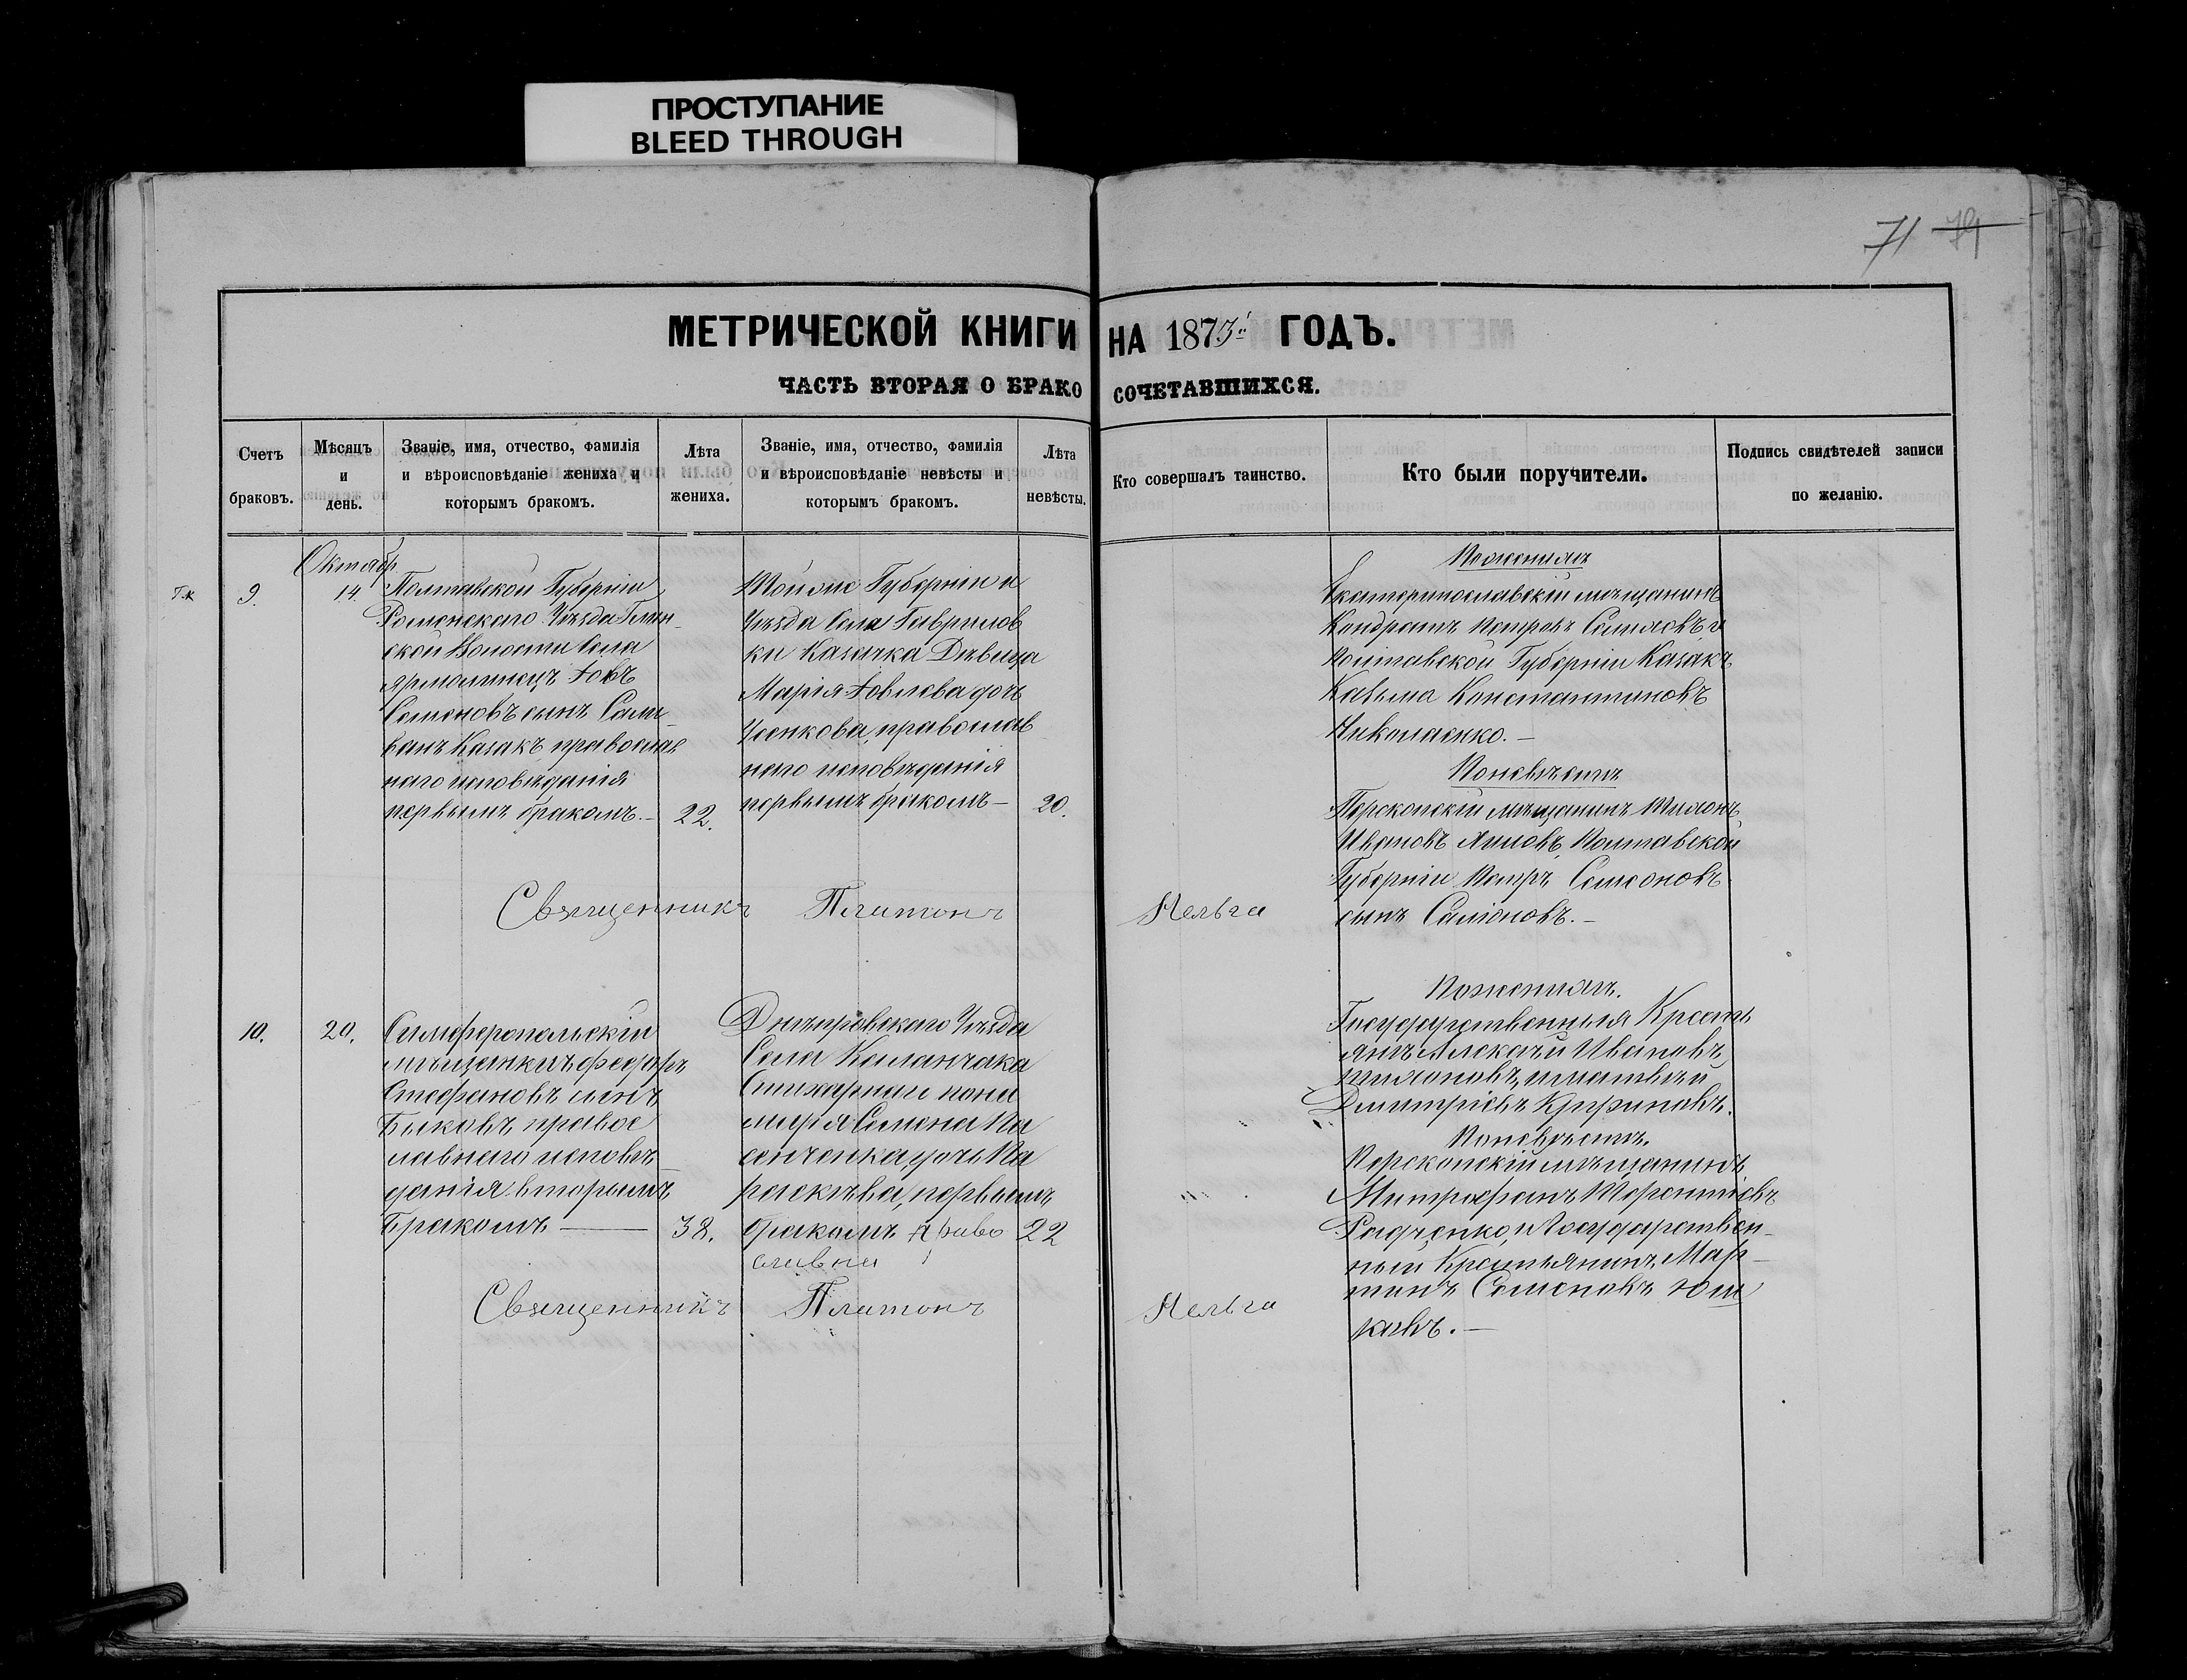 ПРОСТУПАНИЕ
BLEED THROUGH
71 79
МЕТРИЧЕСКОЙ КНИГИ НА 1873й ГОДЪ.
ЧАСТЬ ВТОРАЯ О БРАКОСОЧЕТАВШИХСЯ.
Счетъ
браковъ.
Мѣсяцъ
и
день.
Званіе, имя, отчество, фамилія
и вѣроисповѣданіе жениха и
которымъ бракомъ.
Лѣта
жениха.
Званіе, имя, отчество, фамилія
и вѣроисповѣданіе невѣсты и
которымъ бракомъ.
Лѣта
невѣсты.
Кто совершалъ таинство.
Кто были поручители.
Подпись свидѣтелей записи
по желанію.
9.
Октябр
14
Полтавской Губерніи
Роменскаго Уѣзда Глин-
ской Волости Села
Ярмолинец Іовъ
Семеновъ сынъ Сели-
ванъ Казакъ, православ
наго исповѣданія
первымъ бракомъ.–
22.
Той же Губерніи и
Уѣзда Села Гаврилов
ки Казачка Дѣвица
Марія Іовлева дочь
Усенкова, православ
наго исповѣданія
первымъ бракомъ–
20.
По женихѣ
Екатеринославскій мѣщанинъ
Кондратъ Петровъ и
Полтавской Губерніи Казакъ
Казьма Константиновъ
Николаенко.–
По невѣстѣ
Перекопскій мѣщанинъ
Ивановъ Полтавской
Губерніи Петръ Семеоновъ
сынъ Саліоновъ.–
Священникъ Платонъ
10.
20.
Симферопольскій
мѣщанинъ Феодоръ
Стефановъ сынъ
Быковъ, правос
лавнаго исповѣ
данія вторымъ
Бракомъ —
38.
Днѣпровскаго Уѣзда
Села Каланчака
поно
маря Семена Па
сенченка, дочь Па
раскѣва, первымъ
бракомъ право
славна
22
По женихѣ.
Государственныя Крест
янъ Алексѣй Ивановъ
и Матвѣй
Дмитріевъ
По невѣстѣ.
Перекопскій мѣщанинъ
Митрофанъ Терентіевъ
Радченко, и Государствен-
ный Крестьянинъ, Мар-
тинъ Семеновъ Юш
ковъ.–
Священникъ Платонъ